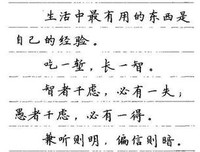 生活中最有用的东西是
自己的经验。
吃一堑，长一智。
智者千虑，必有一失；
愚者千虑，必有一得。
兼听则明，偏信则暗。